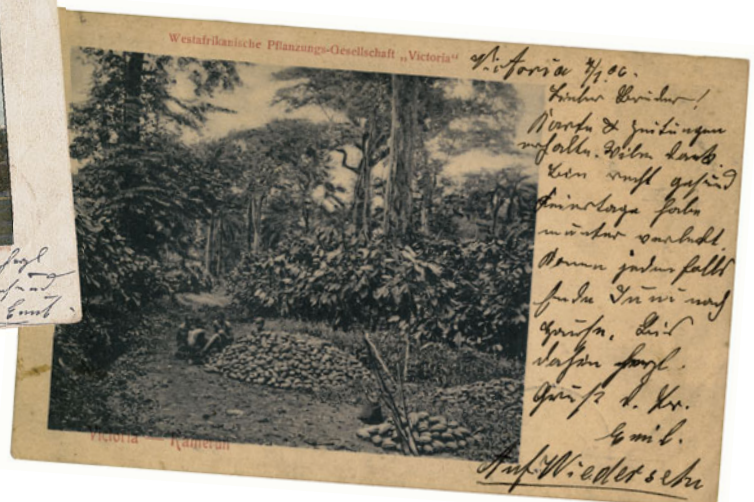 Westafrikanische Pflanzungs-Gesellschaft „Victoria“
Victoria 4/1 06.
Lieber Bruder!
Karte & Zeitungen
erhalten. Vielen Dank.
Bin recht gesund
Feiertage habe
munter verlebt.
Komme jedenfalls
Ende Juni nach
Hause. Bis
dahin herzl.
Gruß d. Br.
Emil.
Auf Wiedersehn
Victoria — Kamerun
herzl
Emil.